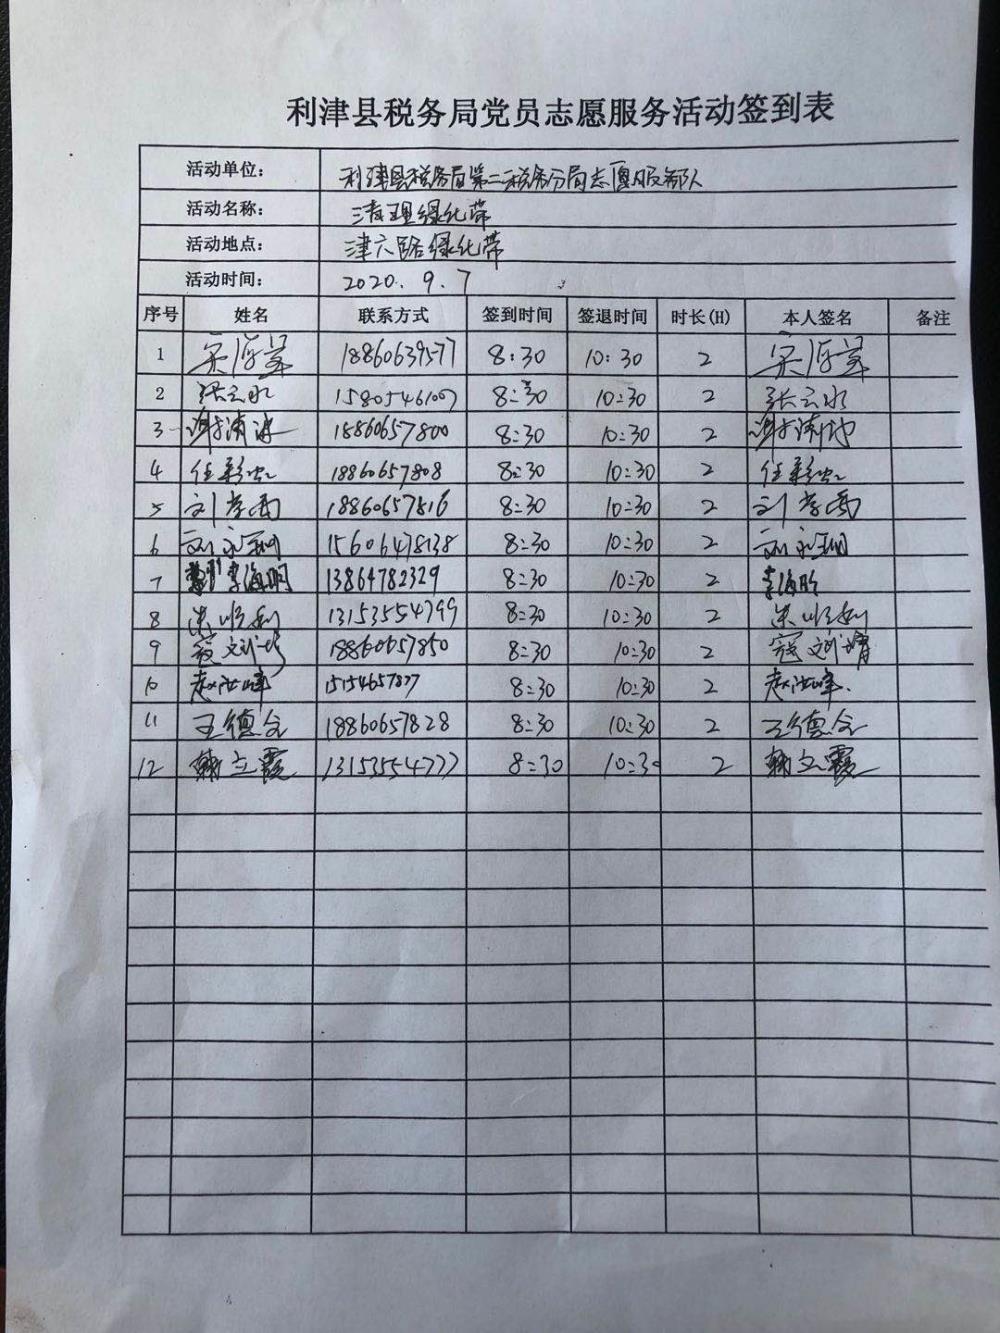 利津县税务局党员志愿服务活动签到表
活动单位: 利津县税务局第二税务分局志愿服务队
活动名称: 清理绿化带
活动地点: 津六路绿化带
活动时间: 2020.9.7
序号 姓名 联系方式 签到时间 签退时间 时长(H) 本人签名 备注
1 18860639577 8:30 10:30 2
2 张云水 15805461007 8:30 10:30 2 张云水
3 18860657800 8:30 10:30 2
4 任彩虹 18860657808 8:30 10:30 2 任彩虹
5 刘孝雨 18860657816 8:30 10:30 2 刘孝雨
6 刘永珊 15606478138 8:30 10:30 2 刘永珊
7 李海明 13864782329 8:30 10:30 2 李海明
8 13153554799 8:30 10:30 2
9 寇刘靖 18860657850 8:30 10:30 2 寇刘靖
10 8:30 10:30 2
11 王德全 18860657828 8:30 10:30 2 王德全
12 韩立霞 13153554777 8:30 10:30 2 韩立霞